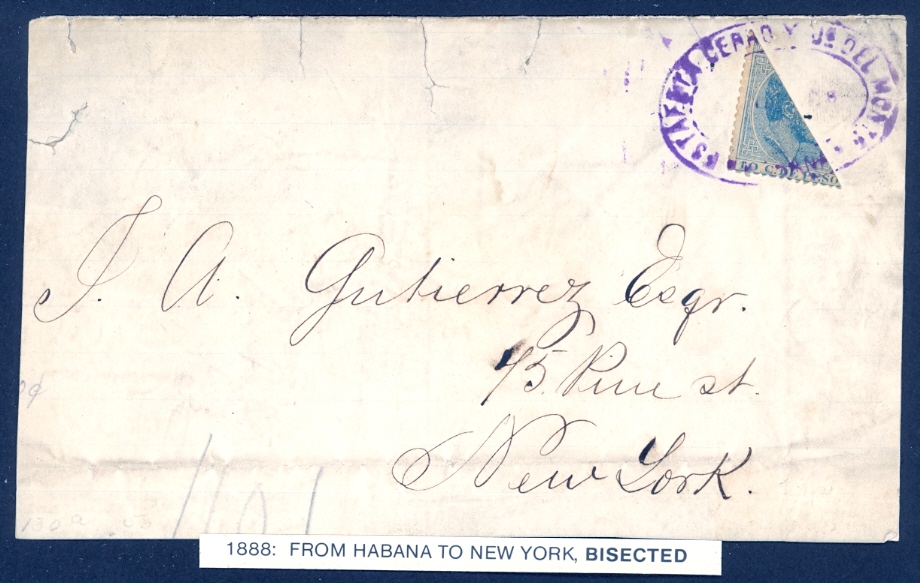 ESTAFETA CERRO Y Js DEL MONTE
10 C. DE PESO
J. A. Gutierrez Esqr.
45 Pine st.
New York.
1888: FROM HABANA TO NEW YORK, BISECTED